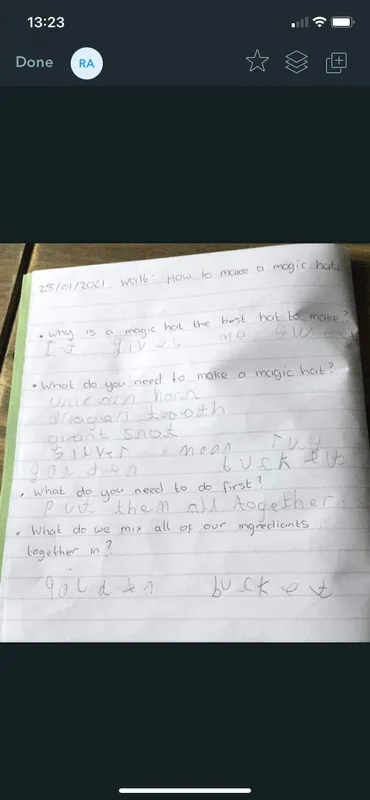 13:23
Done RA
28/01/2021 Walt: How to make a magic hat.
• Why is a magic hat the best hat to make?
It gives me
• What do you need to make a magic hat?
unicorn horn
dragon tooth
giant snot
silver moon
golden bucket
• What do you need to do first?
Put them all together.
• What do we mix all of our ingrediants
together in?
golden bucket